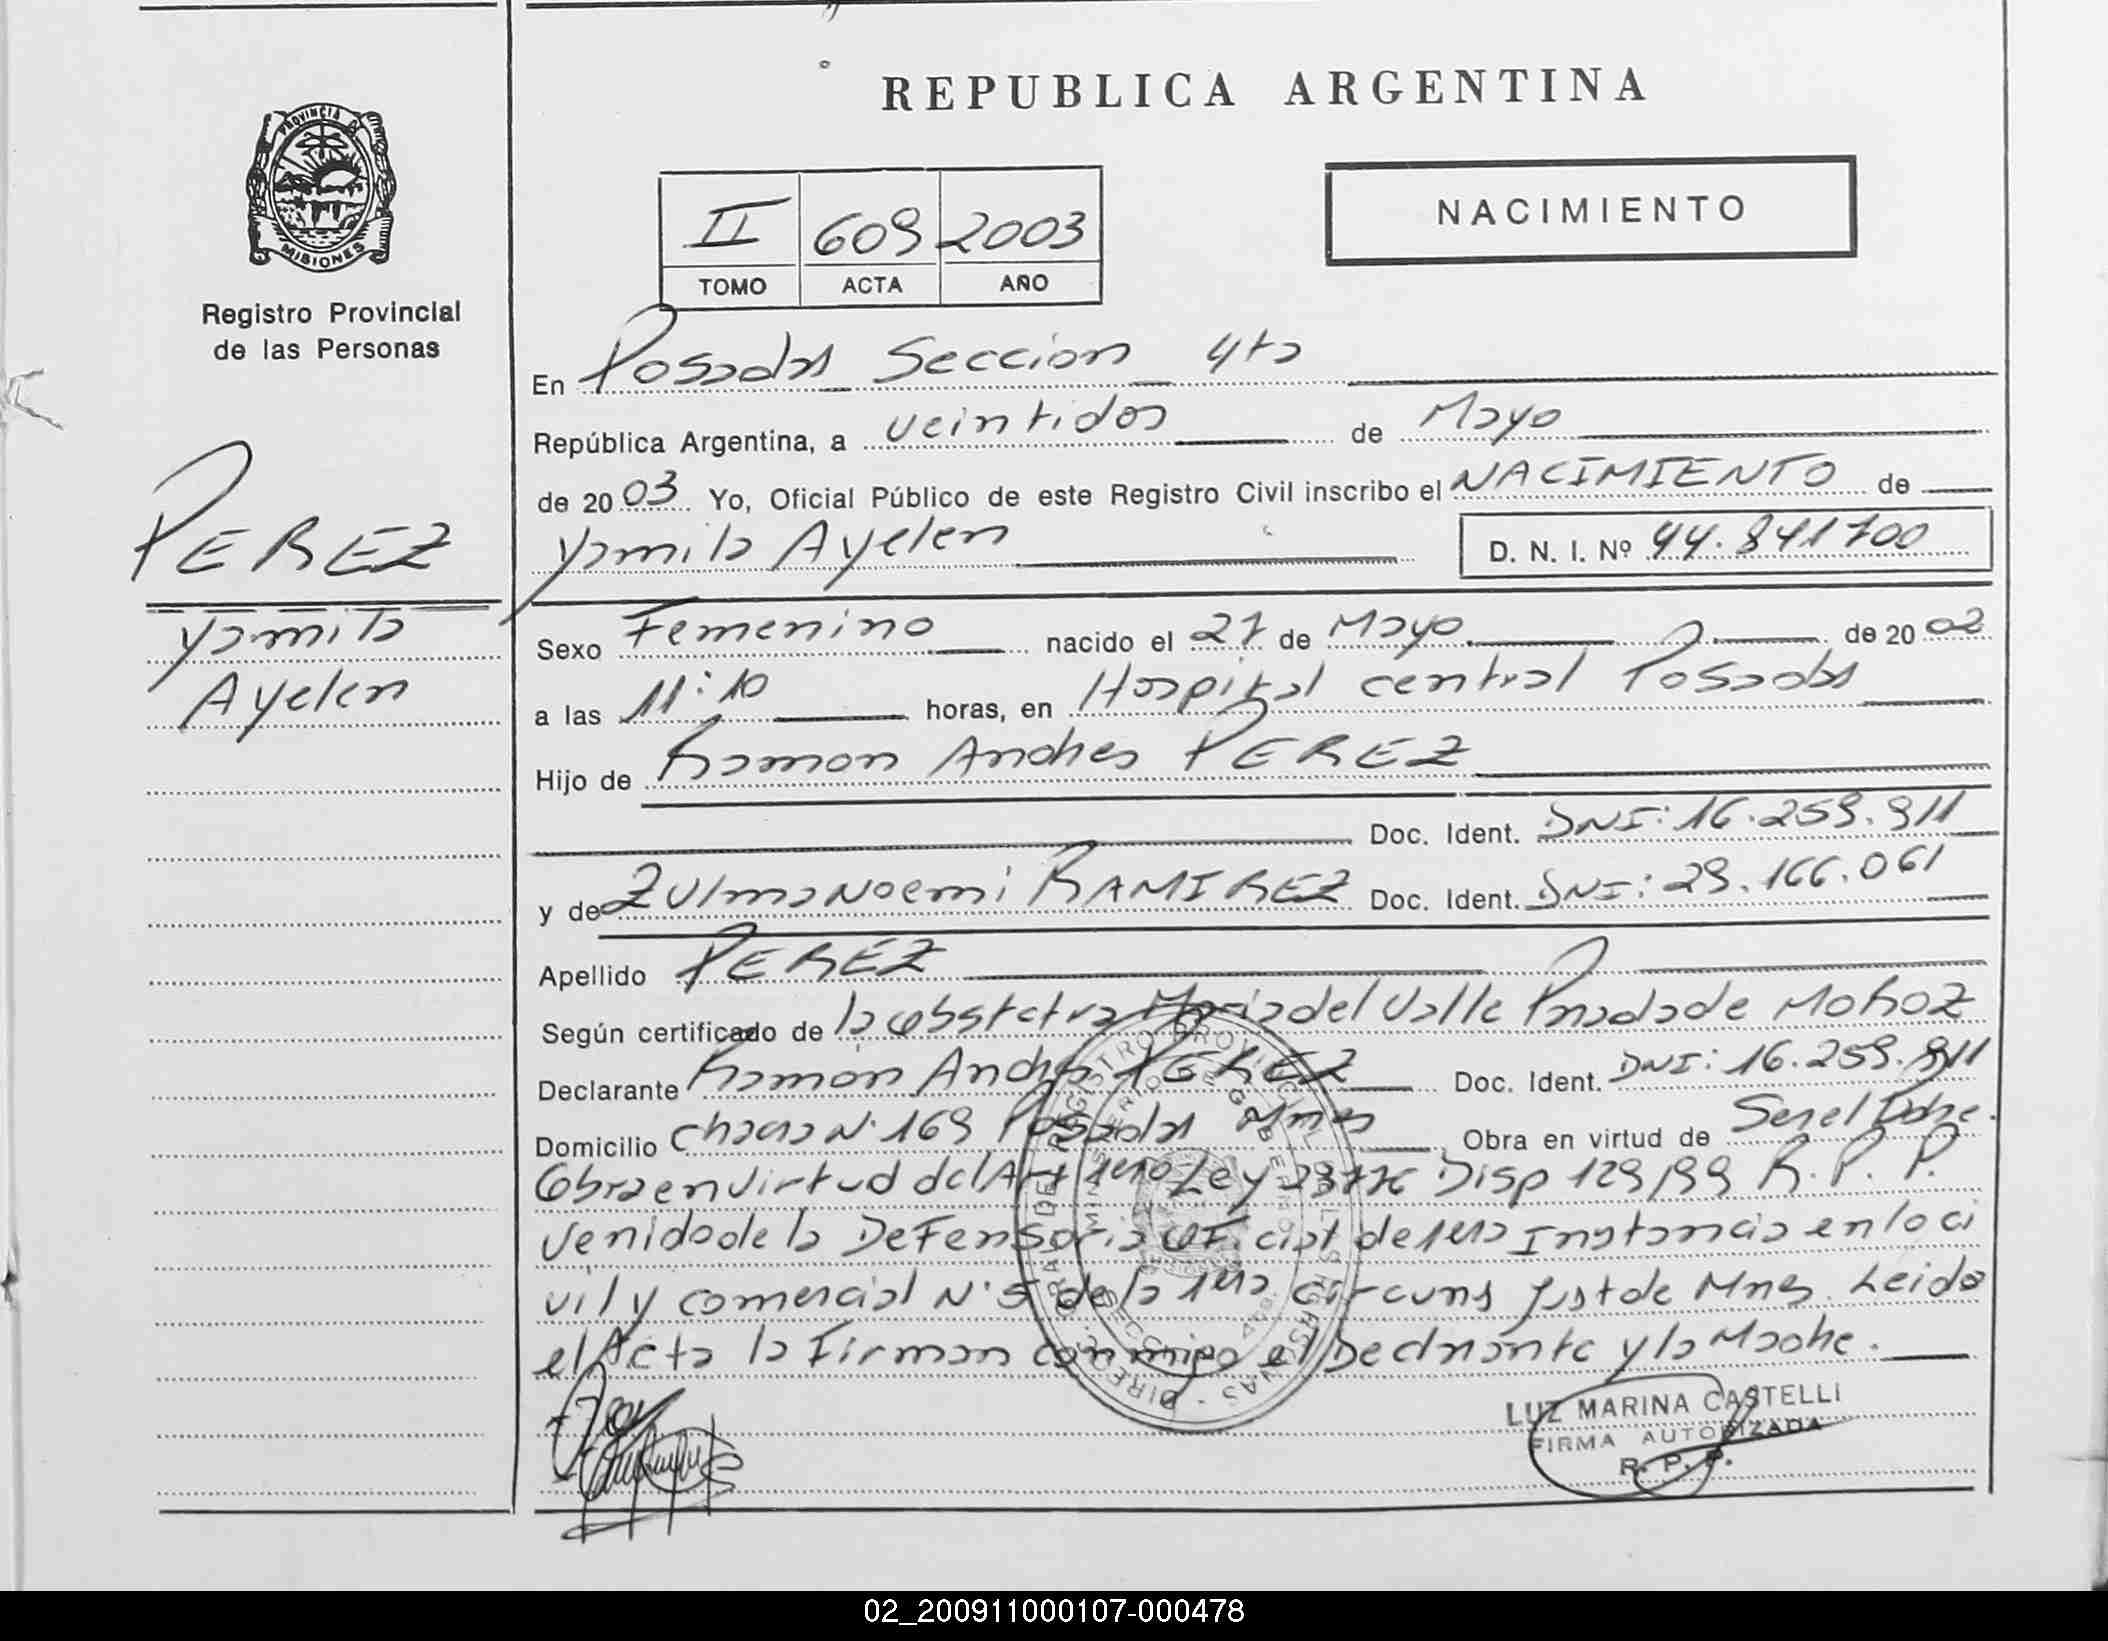 REPUBLICA ARGENTINA
PROVINCIA DE
MISIONES
Registro Provincial
de las Personas
II 609 2003
TOMO ACTA AÑO
NACIMIENTO
PEREZ
Yamila
Ayelen
En Posadas Seccion 4ta
República Argentina, a veintidos de Mayo
de 20 03 Yo, Oficial Público de este Registro Civil inscribo el NACIMIENTO de
Yamila Ayelen D. N. I. Nº 44.841700
Sexo Femenino nacido el 27 de Mayo de 20 02
a las 11:10 horas, en Hospital central Posadas
Hijo de Ramon Andres PEREZ
Doc. Ident. DNI: 16.259.911
y de Zulma Noemi RAMIREZ Doc. Ident. DNI: 29.166.061
Apellido PEREZ
Según certificado de la obstetra Maria del Valle de
Declarante Ramon Andres PEREZ Doc. Ident. DNI: 16.259.911
Domicilio chacra N. 169 Posadas Mnes Obra en virtud de Ser el Padre.
Obra en virtud del Art 1ero Ley Disp 129/99 R. P. P.
venido de la Defensoria Oficial de 1era Instancia en lo ci
vil y comercial N. 5 de la 1era circuns Just de Mnes. Leida
el Acta la Firman conmigo el Declarante y la Madre.
LUZ MARINA CASTELLI
FIRMA AUTORIZADA
R. P. P.
02_200911000107-000478